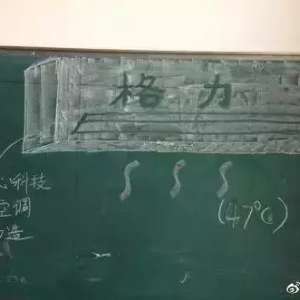 格力
心科技
空调
造
(47°C)